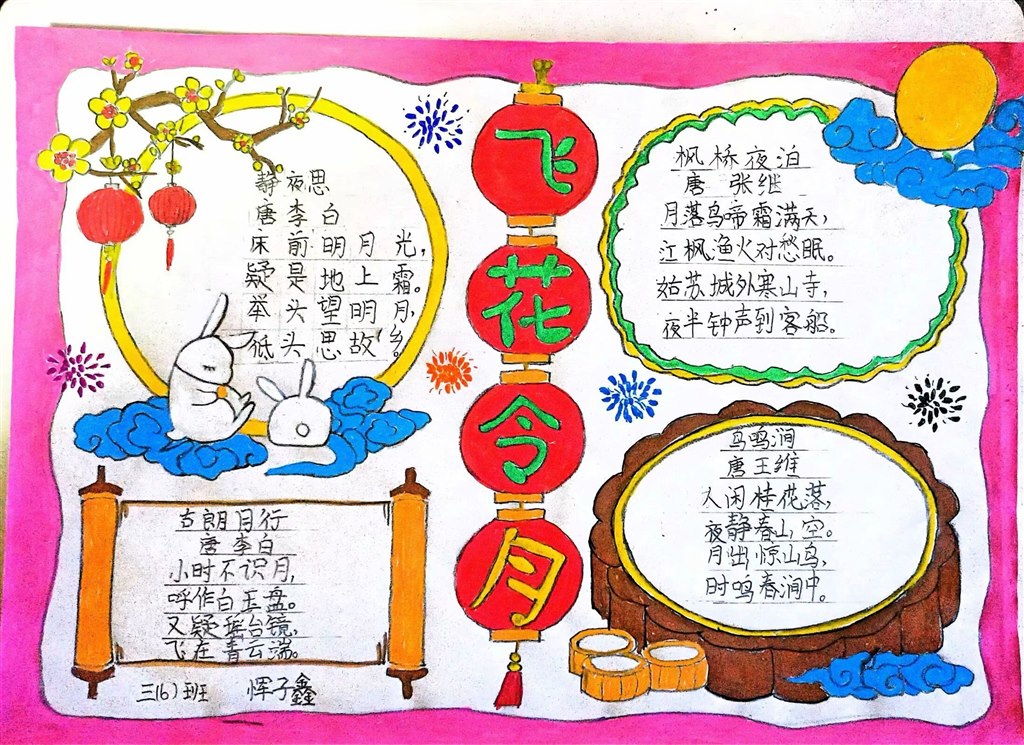 静夜思
唐 李 白
床前明月光，
疑是地上霜。
举头望明月，
低头思故乡。
飞
花
令
月
枫桥夜泊
唐 张继
月落乌啼霜满天，
江枫渔火对愁眠。
姑苏城外寒山寺，
夜半钟声到客船。
古朗月行
唐 李白
小时不识月，
呼作白玉盘。
又疑瑶台镜，
飞在青云端。
三(6)班 恽子鑫
鸟鸣涧
唐 王维
人闲桂花落，
夜静春山空。
月出惊山鸟，
时鸣春涧中。